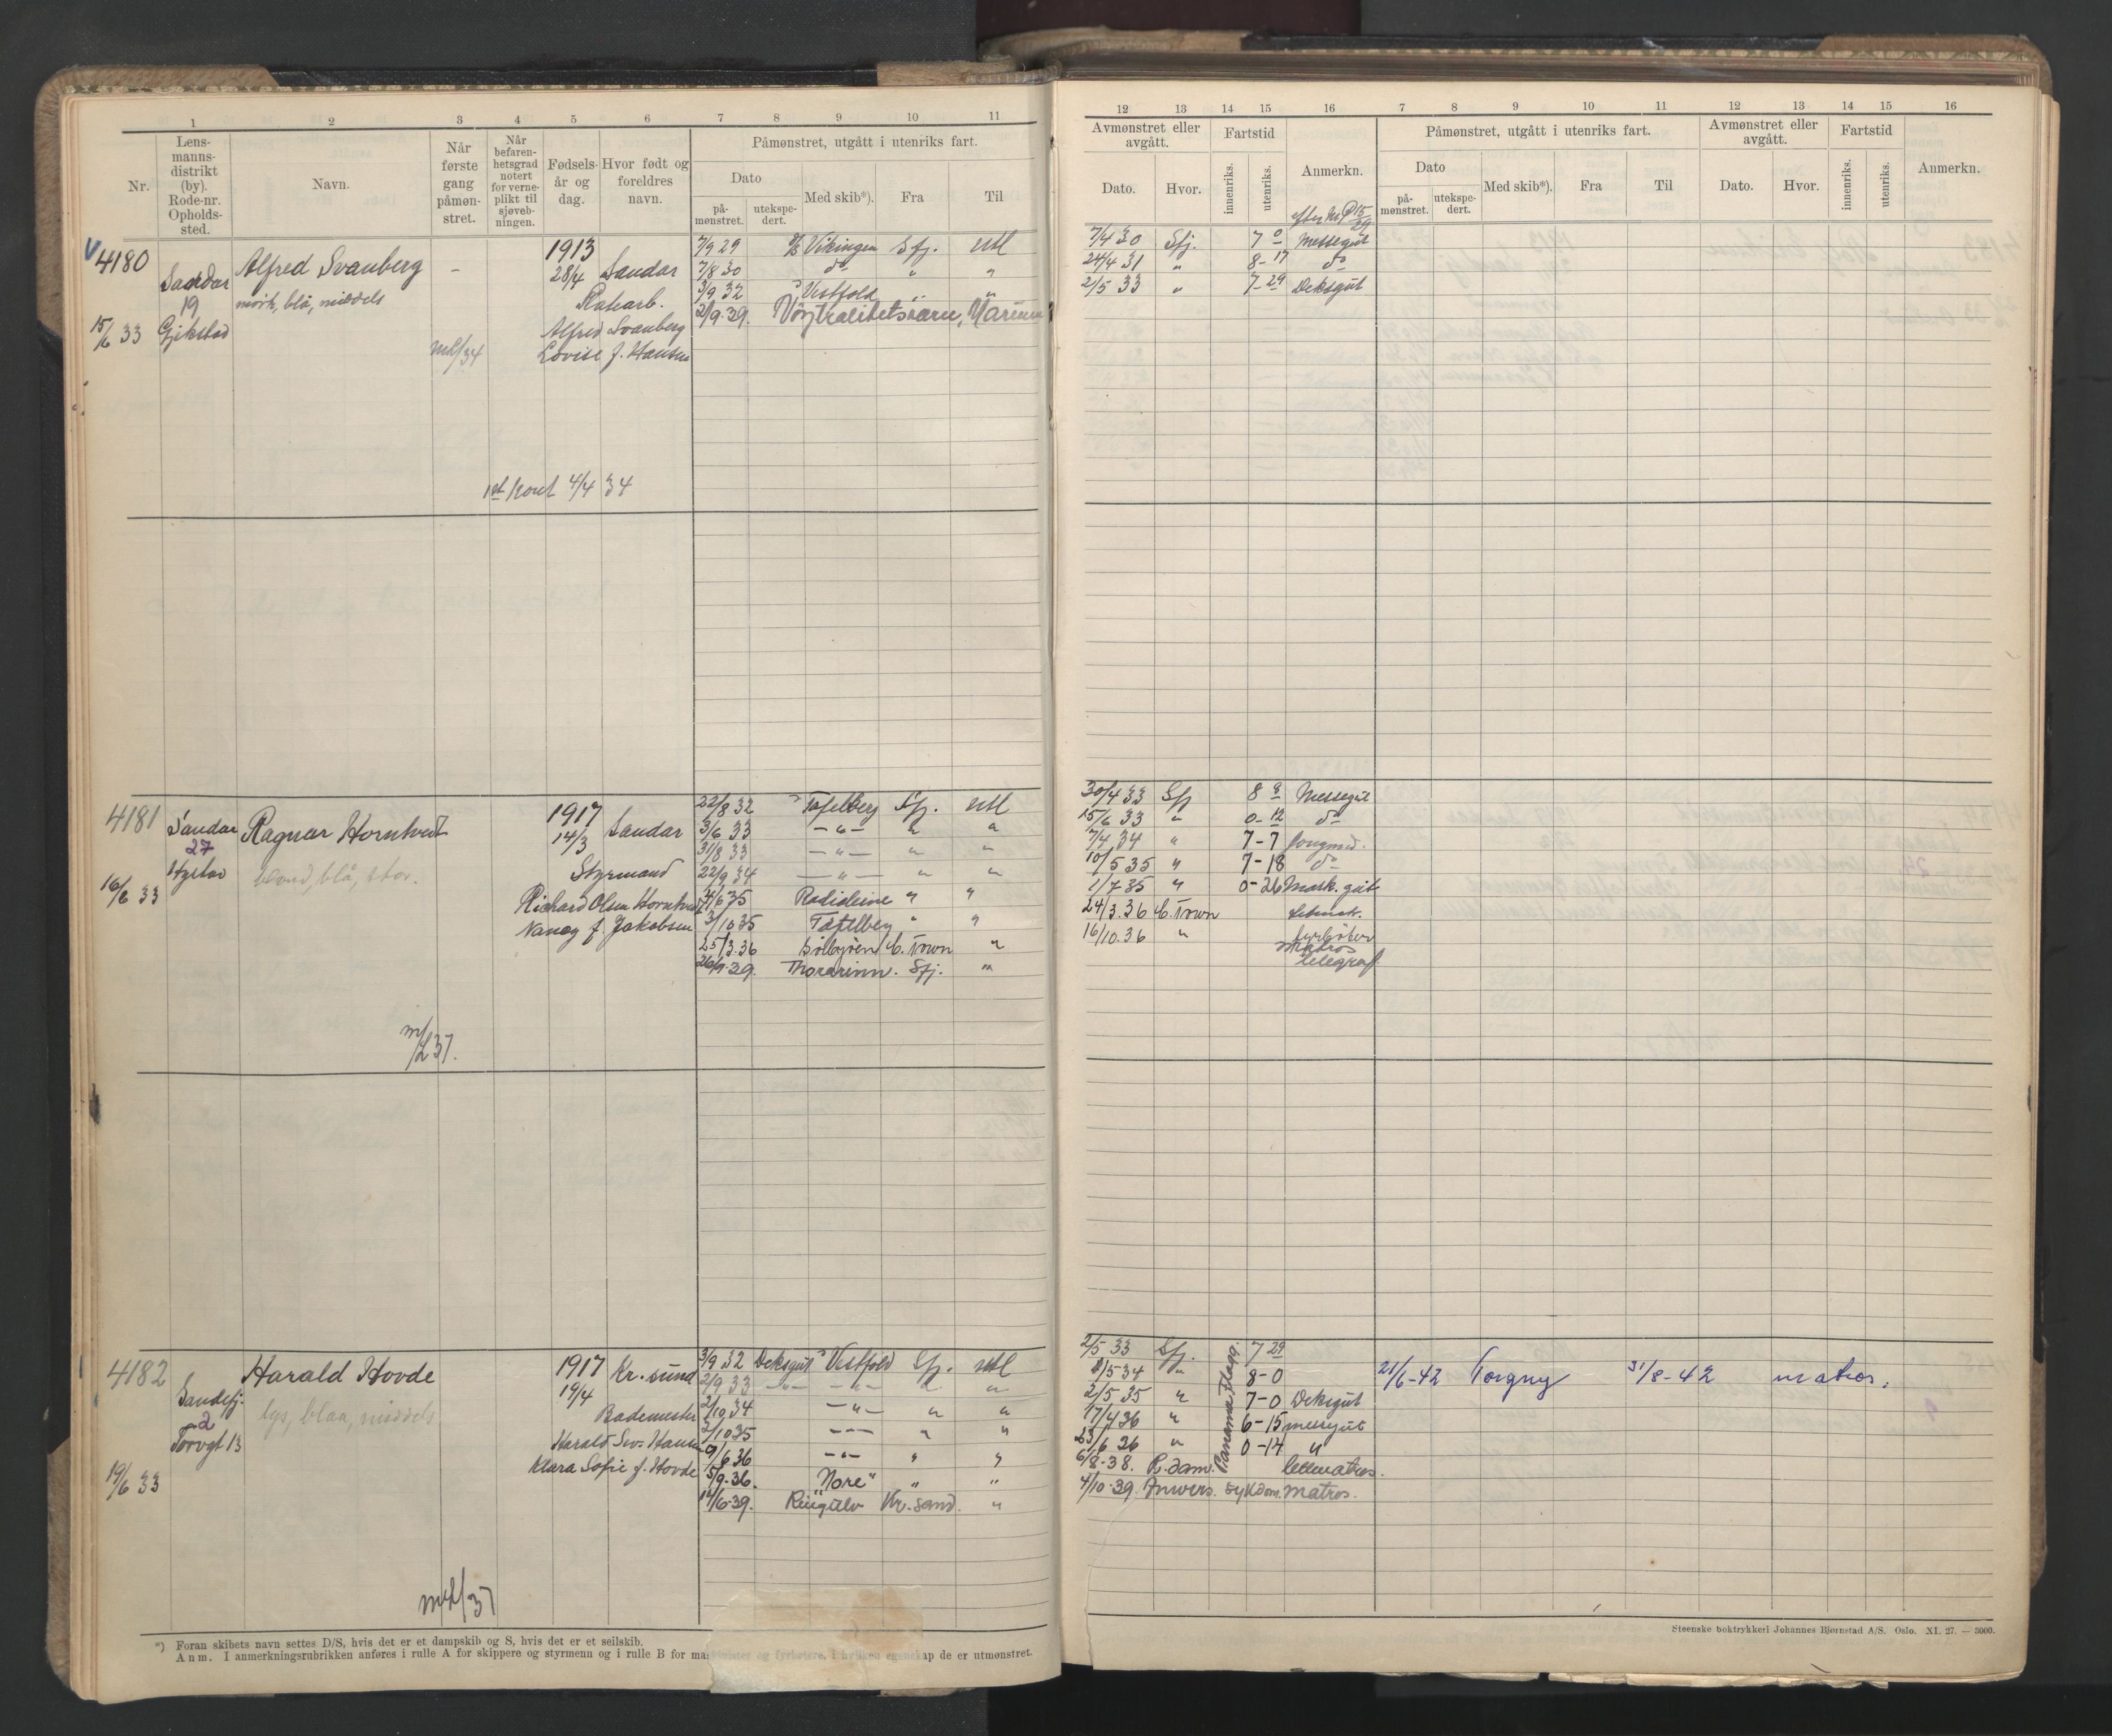 1 2 3 4 5 6 7 8 9 10 11
Nr.
Lens-
manns-
distrikt
(by).
Rode-nr.
Opholds-
sted.
Navn.
Når
første
gang
påmøn-
stret.
Når
befaren-
hetsgrad
notert
for verne-
plikt til
sjøveb-
ningen.
Fødsels-
år og
dag.
Hvor født og
foreldres
navn.
Påmønstret, utgått i utenriks fart.
Dato
på-
mønstret.
utekspe-
dert.
Med skib*).
Fra
Til
V 4180
Sandar
19
Gjekstad
15/6 33
Alfred Svanberg
mørk, blå, middels
–
1913
28/4 Sandar
Alfred Svanberg
Lovise f. Hansen
mL/34
1st kont 4/4 34
7/9 29 Vikingen Sfj. utl
7/8 30 do " "
3/9 32 Vestfold " "
2/9-39. Nøytralitetsvern, Marinen
4181
Sandar
27
16/6 33
Ragnar Horntvedt
blond, blå, stor.
1917
14/3 Sandar
Styrmand
Richard Olsen Horntvedt
Nancy f. Jakobsen
m/L37.
22/8 32 Tafelberg Sfj. utl
3/6 33 — " — " "
31/8 33 — " — " "
22/9 34 — " — " "
4/6 35 Radioleine " "
3/10 35 Tafelberg " "
25/3.36 Solbjören C. Town "
26/9-39. Thorarinn. Sfj. "
4182
Sandefj.
2
Torvgt 13
19/6 33
Harald Hovde
lys, blaa, middels
1917 Kr. sund
19/4
Bademester
Harald Sev. Hansen
Klara Sofie f. Hovde
mL/37
3/9 32 Deksgut Vestfold Sfj. utl
2/9 33 — " — — " — " "
2/10 34 — " — " "
2/10 35 — " — " "
9/6 36 — " — " "
5/9-36. "Nore" " "
12/6-39. Ringulv Kr. sand. "
*) Foran skibets navn settes D/S, hvis det er et dampskib og S, hvis det er et seilskib.
Anm. I anmerkningsrubrikken anføres i rulle A for skippere og styrmenn og i rulle B for maskinister og fyrbøtere, i hvilken egenskap de er utmønstret.
12 13 14 15 16 7 8 9 10 11 12 13 14 15 16
Avmønstret eller
avgått.
Dato.
Hvor.
Fartstid
innenriks.
utenriks.
Anmerkn.
Påmønstret, utgått i utenriks fart.
Dato
på-
mønstret.
utekspe-
dert.
Med skib*).
Fra
Til
Avmønstret eller
avgått.
Dato.
Hvor.
Fartstid
innenriks.
utenriks.
Anmerkn.
7/4 30 Sfj. 7 0 Messegut
24/4 31 " 8-17 do
2/5 33 " 7-29 Deksgut
30/4 33 Sfj 8 9 Messegut
15/6 33 " 0-12 do
7/4 34 " 7-7 Jungmd.
10/5 35 " 7-18 do
1/7 35 " 0-26 Mask. gut
24/3.36 C. Town
16/10.36 " fyrbøter
matros
telegraf.
2/5 33 Sfj. 7 29
8/5 34 " 8-0
2/5 35 " 7-0 Deksgut
17/4 36 " 6-15 messgut
23/6 36 " 0-14 "
6/8-38. R.dam. lettmatros.
4/10-39. Antwers. sykdom. matros.
Panama Flagg.
21/6-42 Torgny 31/8-42 matros.
Steenske boktrykkeri Johannes Bjørnstad A/S. Oslo. XI. 27. — 3000.